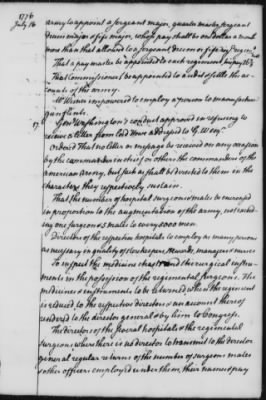 1776
July 16
army to appoint a sergeant major, quarter master sergeant
drum major & fife major, whose pay shall be one dollar a month
more than that allowed to a sergeant drum or fife in y.e regim.t
That a pay master be appointed to each regiment,
That commissioners be appointed to audit & settle the ac-
counts of the army.
M.r Wisner empowered to employ a person to manufacture
gun flints.
17. Gen.l Washington's conduct approved in refusing to
receive a letter from lord Howe addressed to G. Wash.n
Ordered That no letter or message be received on any occasion
by the commander in chief or others the commanders of the
american army, but such as shall be directed to them in the
characters they respectively sustain.
That the number of hospital surgeons & mates be encreased
in proportion to the augmentation of the army, not exceed-
ing one surgeon & 5 mates to every 5000 men.
Directors of the respective hospitals to employ as many persons
as necessary in quality of storekeepers, stewards, managers & nurses
To inspect the medicine chests and the surgical instru-
ments in the possession of the regimental surgeons. The
medicines & instruments to be returned when the regiment
is reduced to the respective directors & an account thereof
rendered to the director general & by him to Congress.
The directors of the several hospitals & the regimental
surgeons where there is no director to transmit to the director
general regular returns of the number of surgeons mates
& other officers employed under them, their names & pay